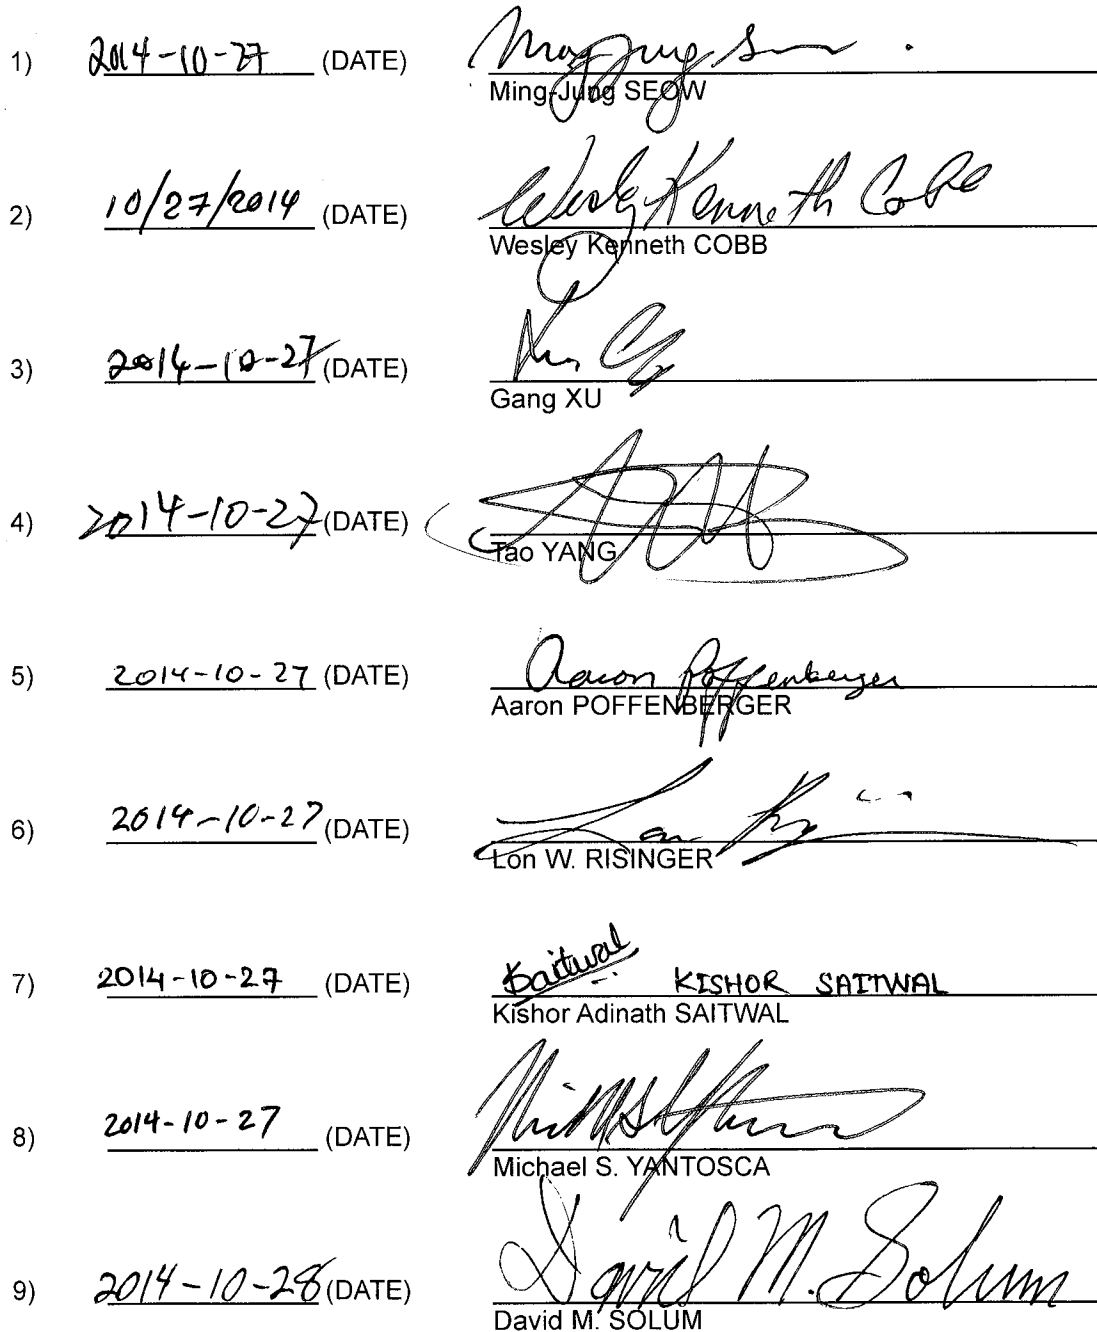 1) 2014-10-27 (DATE) Ming-Jung S
Ming-Jung SEOW
2) 10/27/2014 (DATE) Wesley Kenneth Cobb
Wesley Kenneth COBB
3) 2014-10-27 (DATE)
Gang XU
4) 2014-10-27 (DATE)
Tao YANG
5) 2014-10-27 (DATE) Aaron Poffenberger
Aaron POFFENBERGER
6) 2014-10-27 (DATE)
Lon W. RISINGER
7) 2014-10-27 (DATE) Saitwal KISHOR SAITWAL
Kishor Adinath SAITWAL
8) 2014-10-27 (DATE)
Michael S. YANTOSCA
9) 2014-10-28 (DATE) David M. Solum
David M. SOLUM